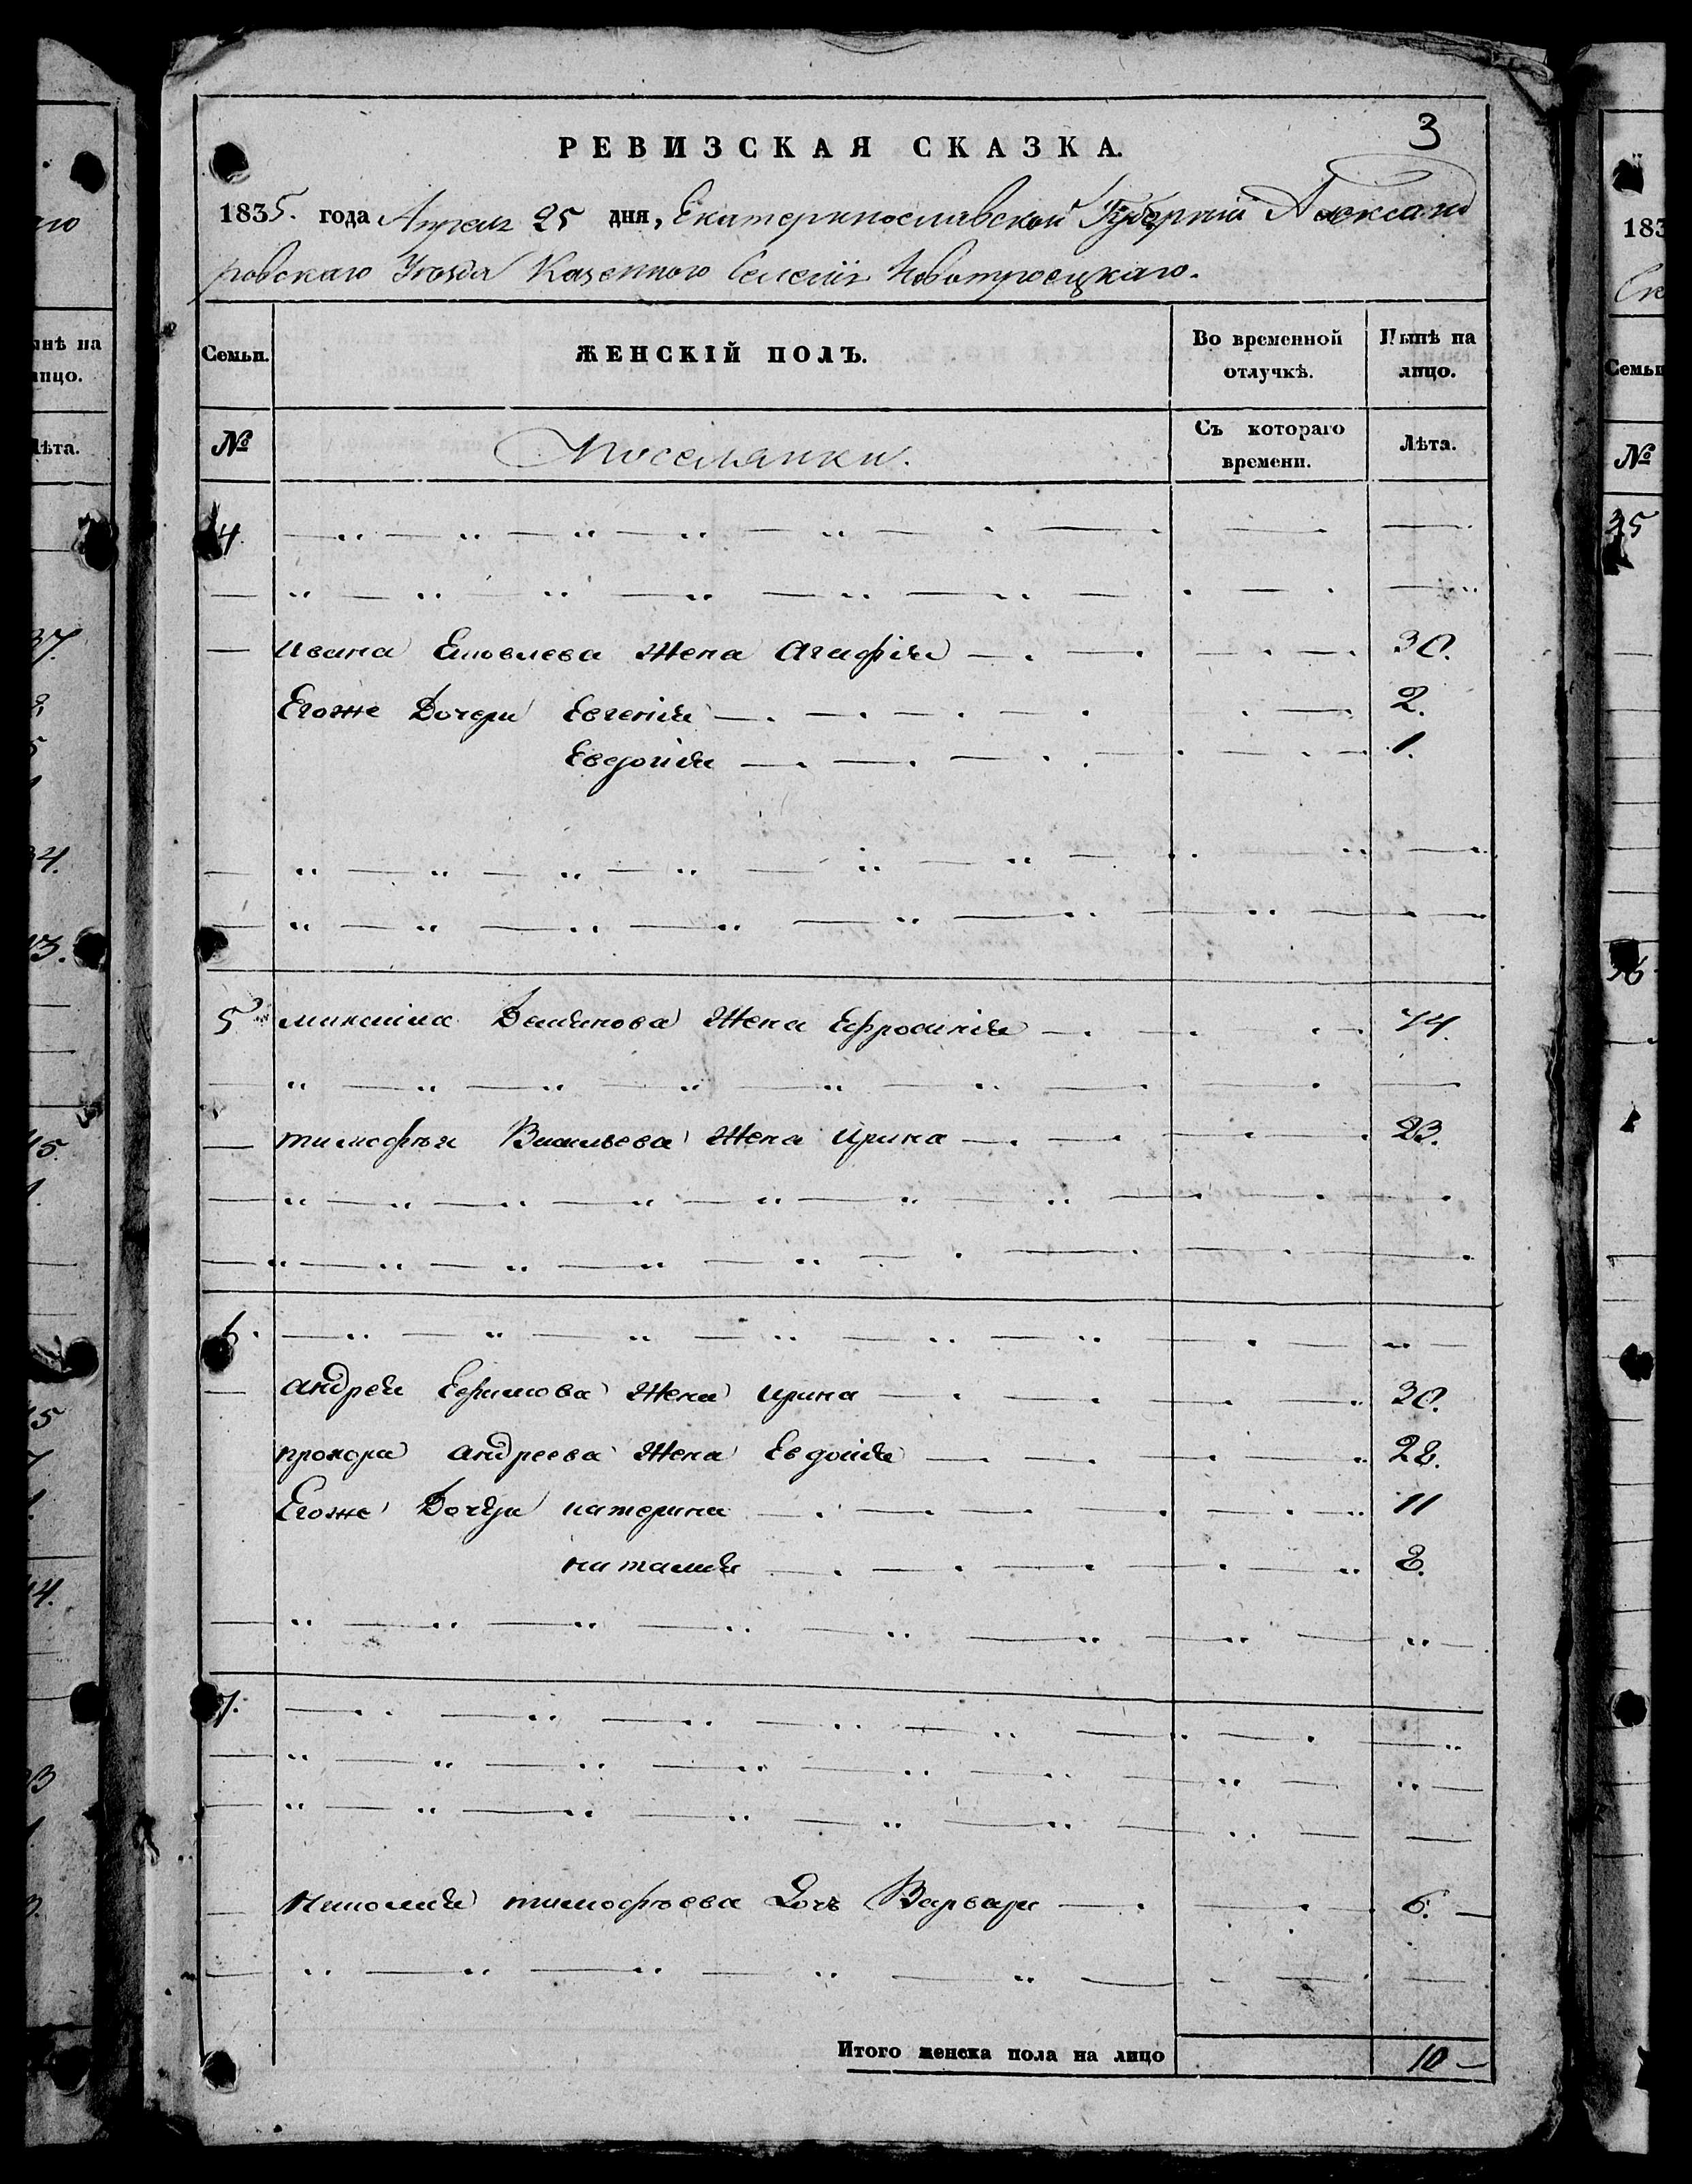 3
РЕВИЗСКАЯ СКАЗКА.
1835. года Апреля 25 дня, Екатеринославской Губернии Александ
ровскаго Уезда Казенного Селения Новотроецкаго.
Семьи. ЖЕНСКІЙ ПОЛЪ. Во временной отлучкѣ. Нынѣ на лицо.
№ Поселянки. Съ котораго времени. Лѣта.
4.
Ивана Яковлева Жена Агафія 30.
Егоже Дочери Евгенія 2.
Евдокія 1.
5 Жена Ефросинія 44.
тимофѣя Васильева Жена Ирина 23.
6.
андрея Ефимова Жена Ирина 30.
прохора андреева Жена Евдокія 28.
Егоже Дочери катерина 11
наталия 8.
7.
Николая тимофѣева Дочь Варвара 6.
Итого женска пола на лицо 10
нѣ на
лицо.
Лѣта.
37.
34.
13.
45.
14.
183
Семьи
№
35
36